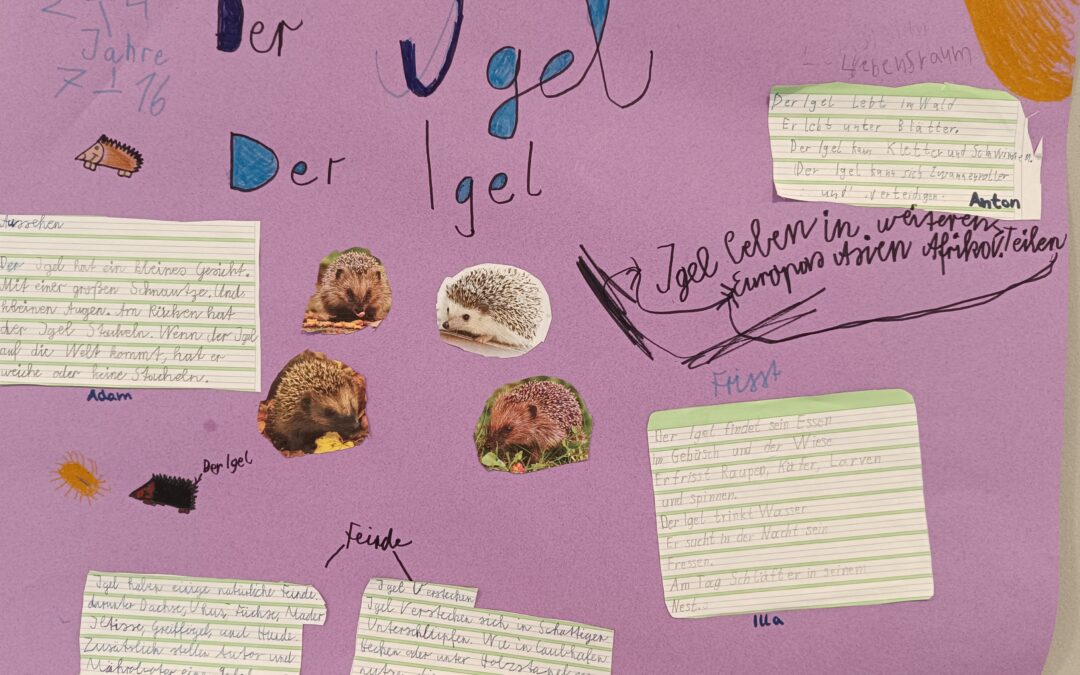 Jahre
Der Igel
Der Igel
Lebensraum
Der Igel lebt im Wald
Er lebt unter Blätter.
Der Igel kann Kletter und Schwimmen.
Der Igel kann sich Zusammenroller
und verteidigen.
Anton
Igel leben in weiteren Teilen
Europas Asien Afrika.
Aussehen
Der Igel hat ein kleines Gesicht.
Mit einer großen Schnautze. Und
kleinen Augen. Am Rücken hat
der Igel Stacheln. Wenn der Igel
auf die Welt kommt, hat er
weiche oder keine Stacheln.
Adam
Der Igel
Frisst
Der Igel findet sein Essen
im Gebüsch und der Wiese
Er frisst Raupen, Käfer, Larven
und spinnen.
Der Igel trinkt Wasser
Er sucht in der Nacht sein
Fressen.
Am Tag Schläft er in seinem
Nest.
Feinde
Igel haben einige natürliche Feinde.
darunter Dachse, Uhus, Füchse, Mader
Iltisse, Greifvögel, und Hunde.
Zusätzlich stellen Autos und
Mähroboter eine
Igel Verstecken
Igel Verstecken sich in Schattigen
Unterschlüpfen. Wie in Laubhaufen
Hecken oder unter Holzstapel